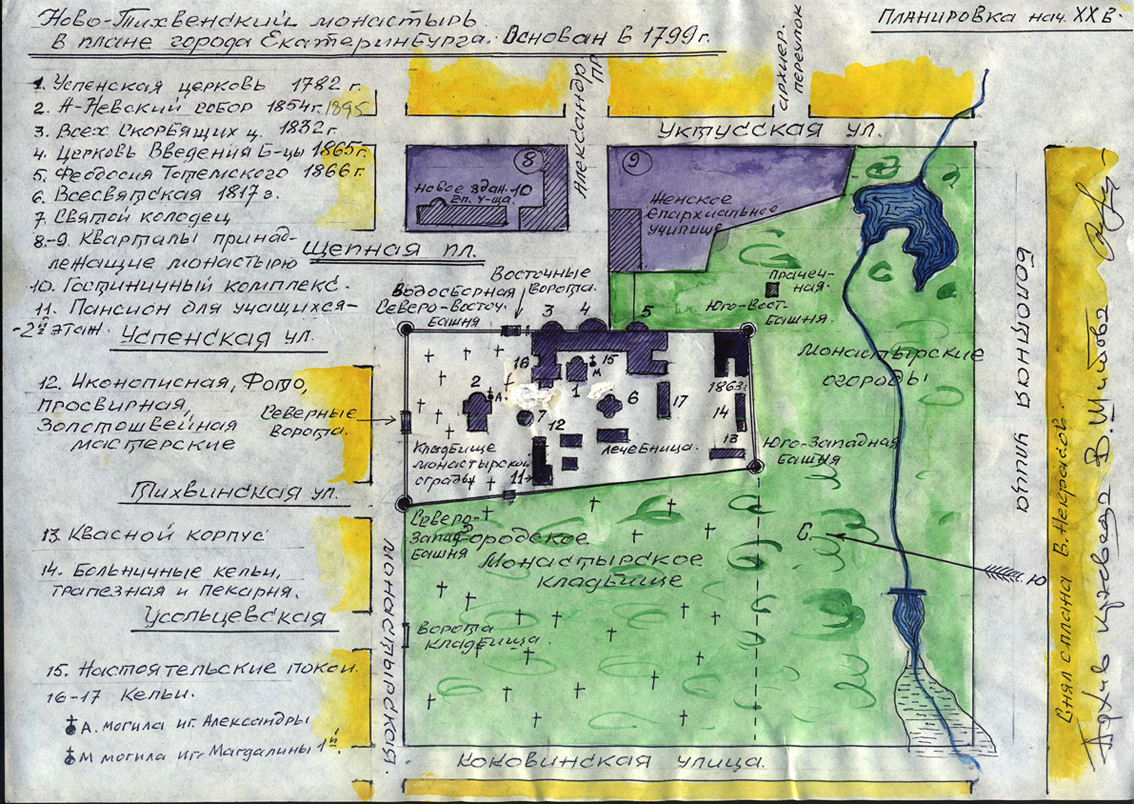 Ново-Тихвенский монастырь
в плане города Екатеринбурга. Основан в 1799 г.
Планировка нач. XX в.
1. Успенская церковь 1782 г.
2. А-Невский собор 1854 г. 1895
3. Всех Скорбящих ц. 1832 г.
4. Церковь Введения Б-цы 1865 г.
5. Феодосия Тотемского 1866 г.
6. Всесвятская 1817 г.
7. Святой колодец
8-9. Кварталы принад-
лежащие монастырю
10. Гостиничный комплекс.
11. Пансион для учащихся-
-2й этаж.
Успенская ул.
12. Иконописная, Фото,
просвирная,
Золотошвейная
мастерские
Тихвинская ул.
13. Квасной корпус
14. Больничные кельи,
трапезная и пекарня.
Усольцевская
15. Настоятельские покои.
16-17 Кельи.
А. могила иг. Александры
М могила иг. Магдалины 1й.
Александр.
пр.
архиер.
переулок
Уктусская ул.
8
Новое здан. 10
Еп. у-ща.
9
Женское
епархиальное
училище
Щепная пл.
Восточные
ворота.
Водосборная
Северо-Восточ.
башня
3
4
5
Прачеч-
ная.
Юго-Вост.
башня.
Монастырские
огороды
Болотная улица
16
15
М
1
2
А.
6
7
17
1863г.
14
13
12
11
Лечебница.
Северные
ворота.
Кладбище
монастырской
ограды
Юго-Западная
башня
Северо-
Запад.
башня
Городское
Монастырское
кладбище
С.
Ю
Ворота
кладбища.
Монастырская.
Коковинская улица.
Снял с плана В. Некрасов.
Архив краеведа В. Шитова